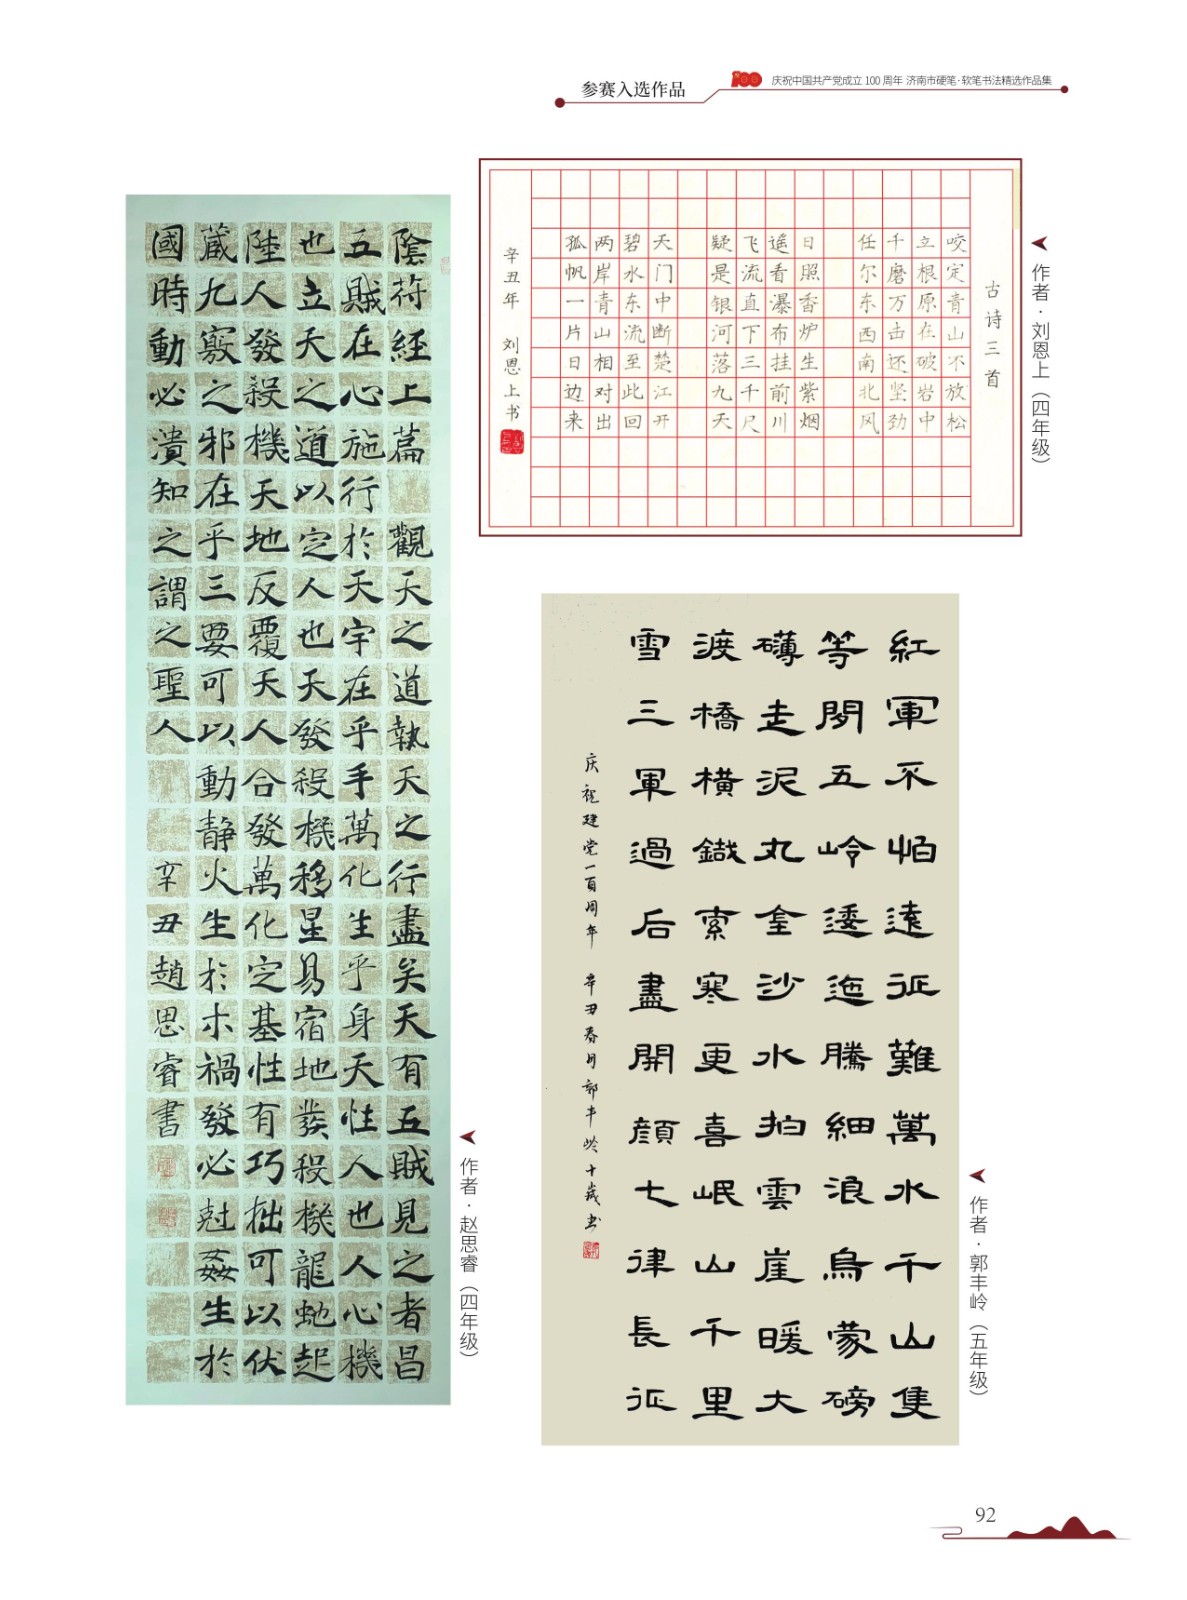 参赛入选作品
100 庆祝中国共产党成立 100 周年 济南市硬笔·软笔书法精选作品集
古诗三首
咬定青山不放松
立根原在破岩中
千磨万击还坚劲
任尔东西南北风
日照香炉生紫烟
遥看瀑布挂前川
飞流直下三千尺
疑是银河落九天
天门中断楚江开
碧水东流至此回
两岸青山相对出
孤帆一片日边来
辛丑年 刘恩上书
作者·刘恩上（四年级）
陰符經上篇 觀天之道執天之行盡矣天有五賊見之者昌
五賊在心施行於天宇在乎手萬化生乎身天性人也人心機
也立天之道以定人也天發殺機移星易宿地發殺機龍虵起
陸人發殺機天地反覆天人合發萬化定基性有巧拙可以伏
藏九竅之邪在乎三要可以動靜火生於木禍發必尅姦生於
國時動必潰知之謂之聖人 辛丑趙思睿書
作者·赵思睿（四年级）
紅軍不怕遠征難萬水千山隻
等閑五岭逶迤騰細浪烏蒙磅
礴走泥丸金沙水拍雲崖暖大
渡橋橫鐵索寒更喜岷山千里
雪三軍過后盡開顏七律長征
庆祝建党一百周年 辛丑春月郭丰岭十歲书
作者·郭丰岭（五年级）
92